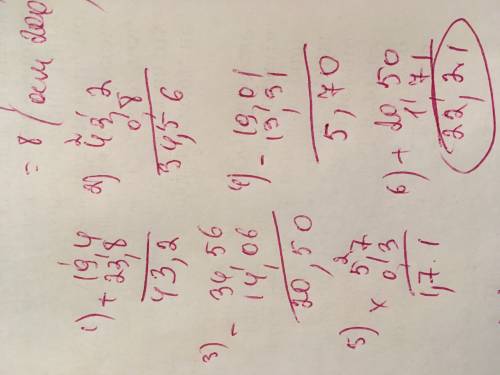 = 8
1) + 19,4
23,8
43,2
2) 43,2
0,8
34,56
3) - 34,56
14,06
20,50
4) - 19,01
13,31
5,70
5) × 5,7
0,3
1,71
6) + 20,50
1,71
22,21